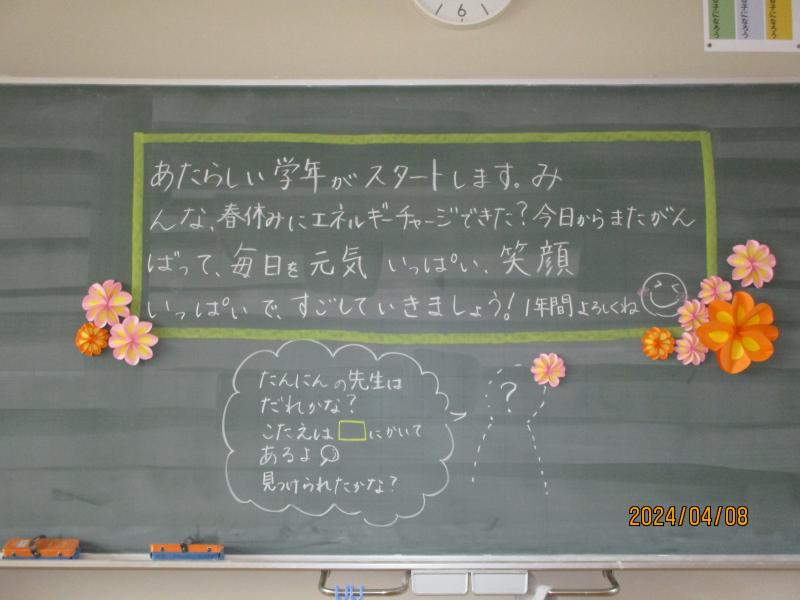 6
子になろう
子になろう
子になろう
あたらしい学年がスタートします。み
んな、春休みにエネルギーチャージできた?今日からまたがん
ばって、毎日を元気いっぱい、笑顔
いっぱいで、すごしていきましょう!1年間よろしくね
たんにんの先生は
だれかな?
こたえは□にかいて
あるよ
見つけられたかな?
?
2024/04/08